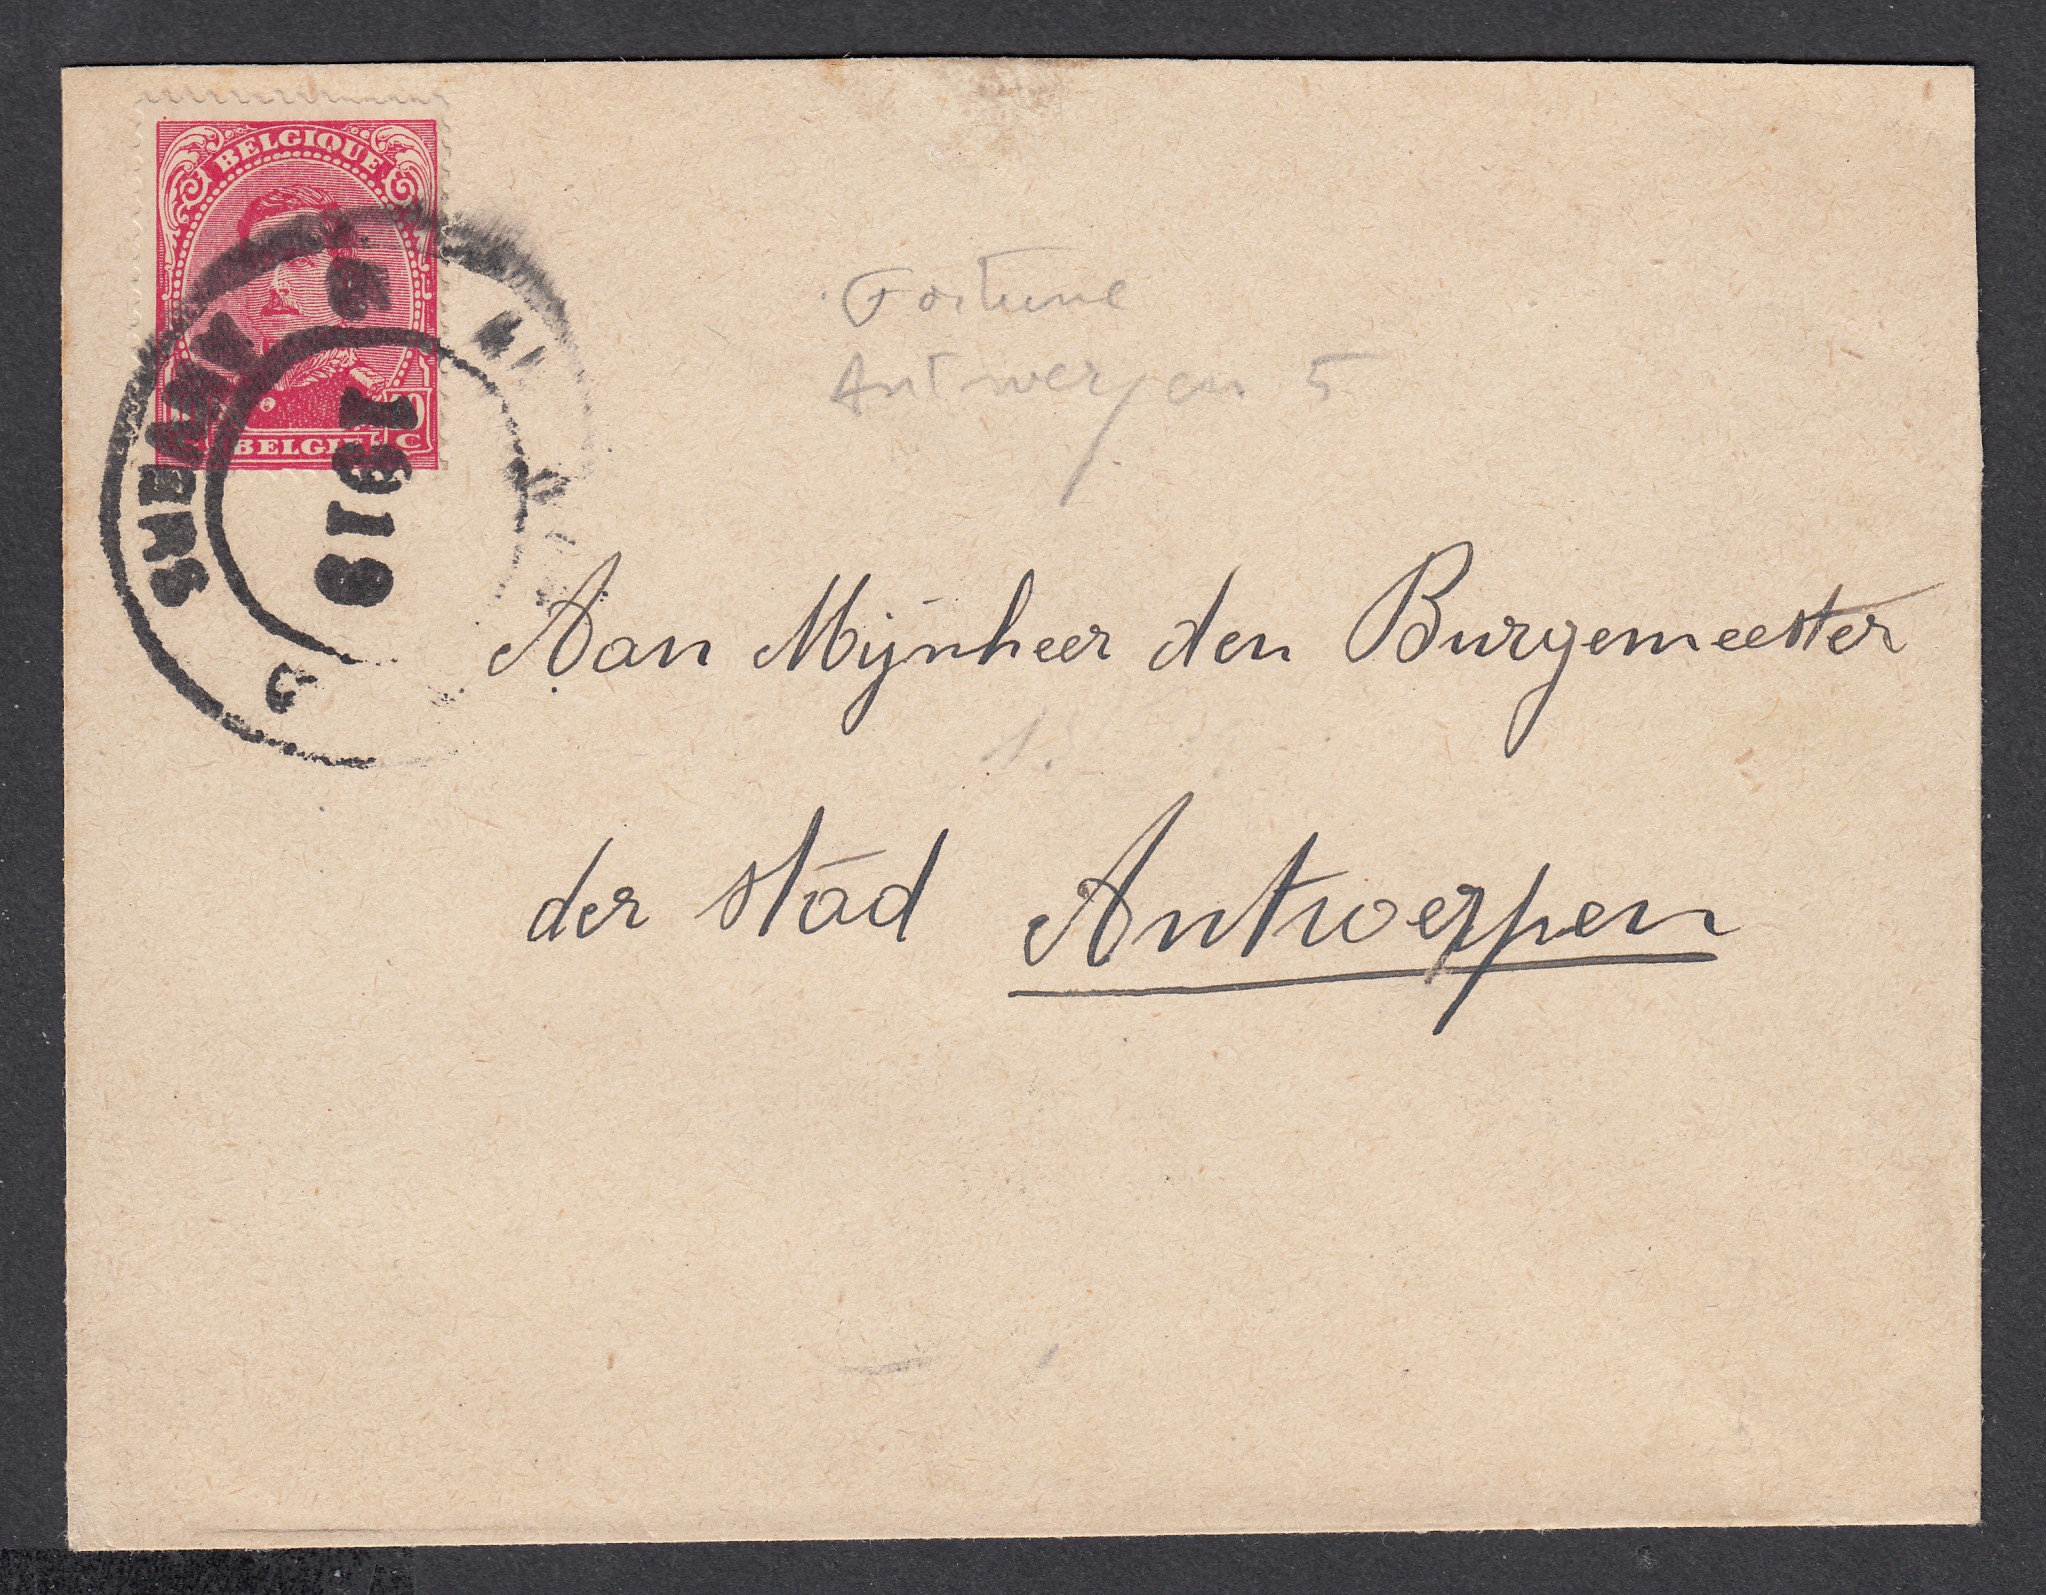 BELGIQUE
C
BELGIË
ANVERS
1919
5
Fortune
Antwerpen 5
Aan Mijnheer den Burgemeester
der stad Antwerpen